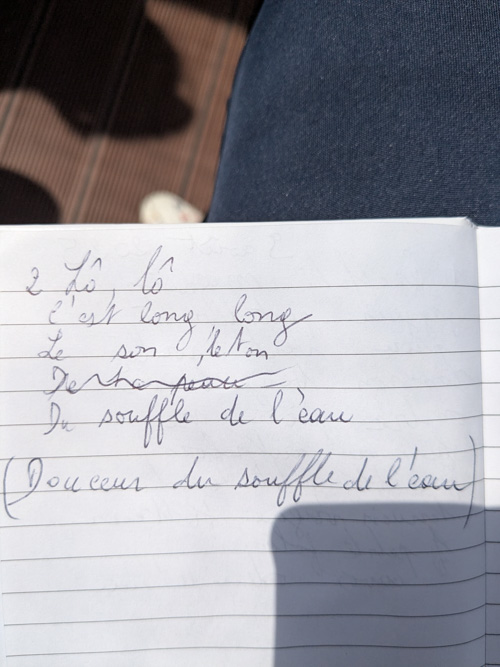 2 Lô, lô
C'est long long
Le son, le ton
Du souffle de l'eau
(Douceur du souffle de l'eau)